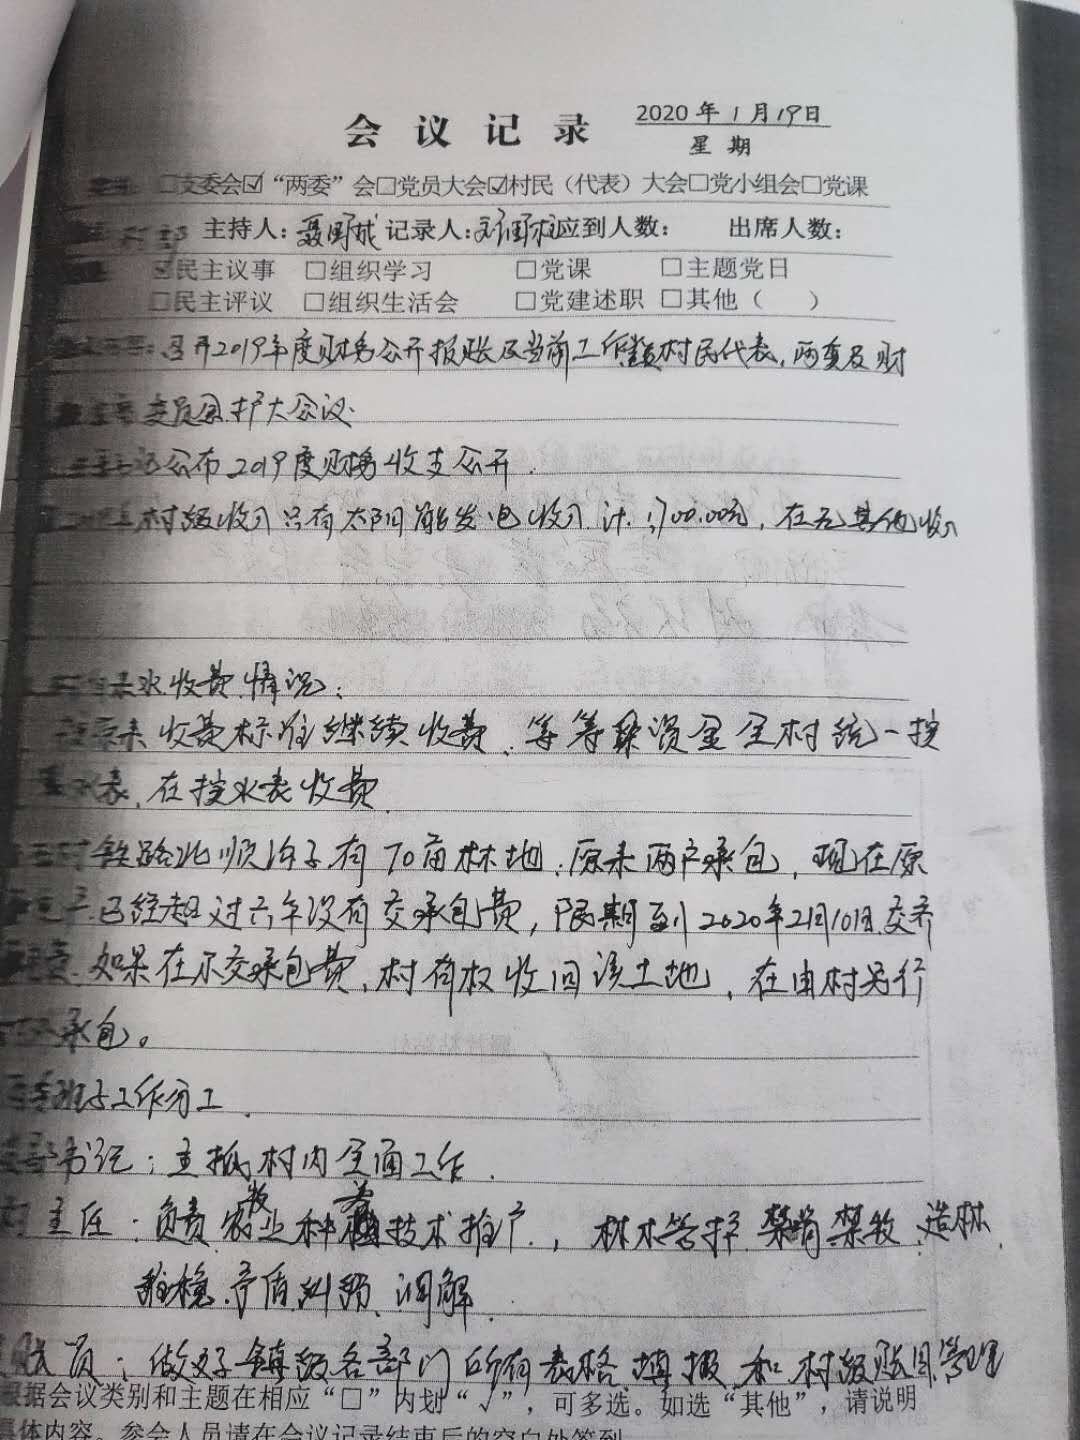 2020年1月19日
会议记录
星期
□支委会☑“两委”会□党员大会☑村民（代表）大会□党小组会□党课
村部 主持人：聂国成 记录人： 应到人数： 出席人数：
☑民主议事 □组织学习 □党课 □主题党日
□民主评议 □组织生活会 □党建述职 □其他（ ）
召开2019年度财务公开报账及当前工作 村民代表、两委及财
委员会扩大会议.
公布2019度财务收支公开.
村级收入只有太阳能发电收入 计 00.00元，在无其他收入
自来水收费情况：
按原来收费标准继续收费、等筹 资金全村统一按
水表，在按水表收费
铁路北顺沟子有70亩林地，原来两户承包，现在原
已经超过六年没有交承包费，限期到2020年2月10日交齐
如果在不交承包费，村有权收回该土地，在由村另行
承包。
班子工作分工.
支部书记：主抓村内全面工作.
村主任：负责农牧业种养技术推广，林木管护 禁牧 造林
维稳.矛盾纠纷、调解.
做好镇级各部门所有表格填报和村级账目管理
根据会议类别和主题在相应“□”内划“√”，可多选。如选“其他”，请说明
具体内容。参会人员请在会议记录结束后的空白处签到